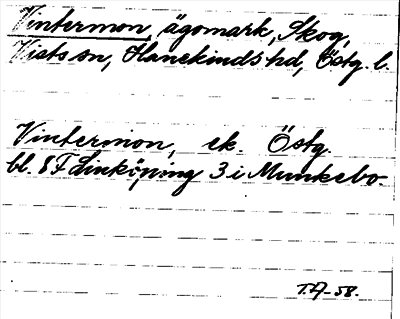 Vintermon, ägomark, Skog,
Vists sn, Hanekinds hd, Östg. l.
Vintermon, ek. Östg.
bl. 8F Linköping 3 i Munkebo.
T.A-58.